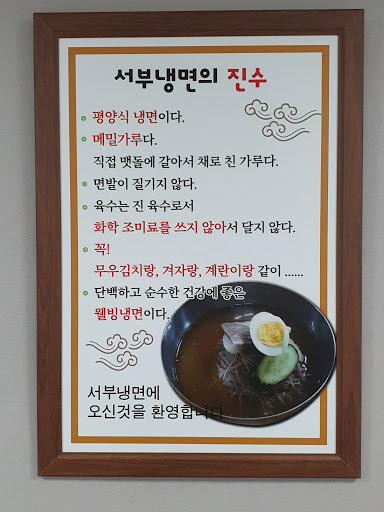 서부냉면의 진수
평양식 냉면이다.
메밀가루다.
직접 맷돌에 갈아서 채로 친 가루다.
면발이 질기지 않다.
육수는 진 육수로서
화학 조미료를 쓰지 않아서 달지 않다.
꼭!
무우김치랑, 겨자랑, 계란이랑 같이 ......
단백하고 순수한 건강에 좋은
웰빙냉면이다.
서부냉면에
오신것을 환영합니다